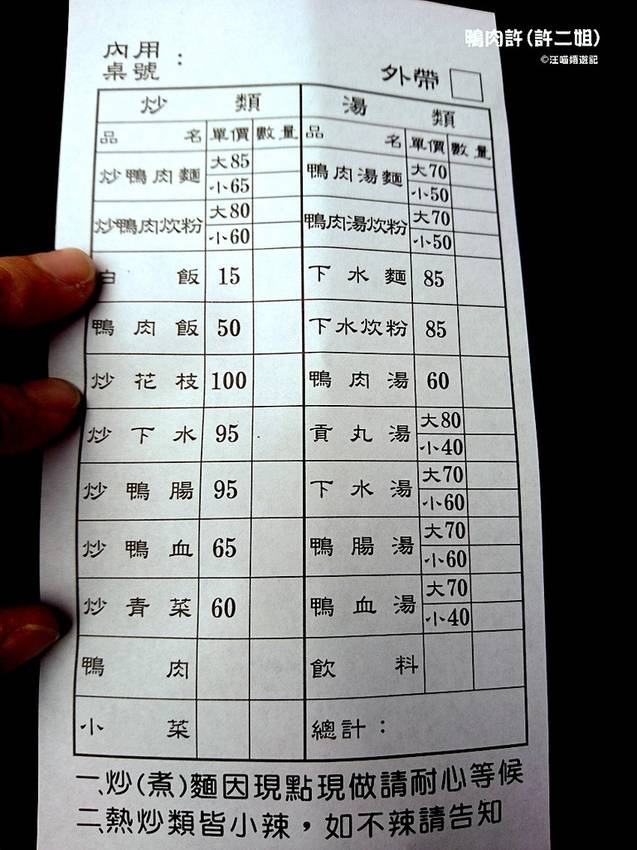 鴨肉許(許二姐)
©汪喵嬉遊記
內用
桌號：
外帶
炒類 湯類
品名 單價 數量 品名 單價 數量
炒鴨肉麵 大85 小65 鴨肉湯麵 大70 小50
炒鴨肉炊粉 大80 小60 鴨肉湯炊粉 大70 小50
白飯 15 下水麵 85
鴨肉飯 50 下水炊粉 85
炒花枝 100 鴨肉湯 60
炒下水 95 貢丸湯 大80 小40
炒鴨腸 95 下水湯 大70 小60
炒鴨血 65 鴨腸湯 大70 小60
炒青菜 60 鴨血湯 大70 小40
鴨肉 飲料
小菜 總計：
一、炒(煮)麵因現點現做請耐心等候
二、熱炒類皆小辣，如不辣請告知